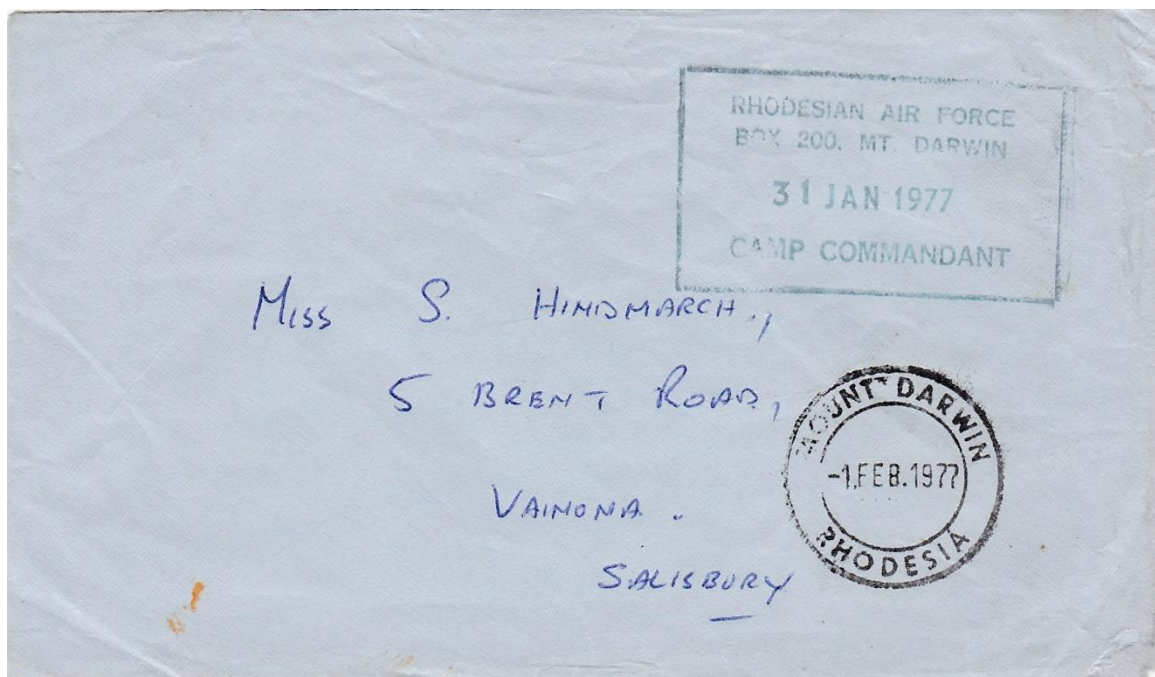 RHODESIAN AIR FORCE
BOX 200. MT. DARWIN
31 JAN 1977
CAMP COMMANDANT
Miss S. HINDMARCH.,
5 BRENT ROAD,
VAINONA.
SALISBURY
MOUNT DARWIN
-1.FEB.1977
RHODESIA